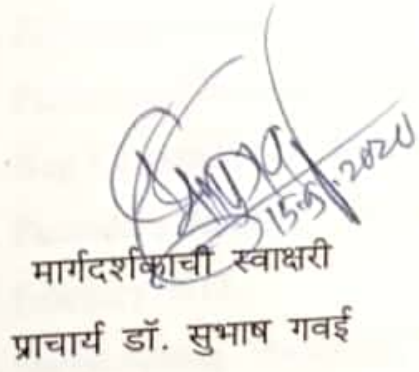 15.5.2020
मार्गदर्शकाची स्वाक्षरी
प्राचार्य डॉ. सुभाष गवई